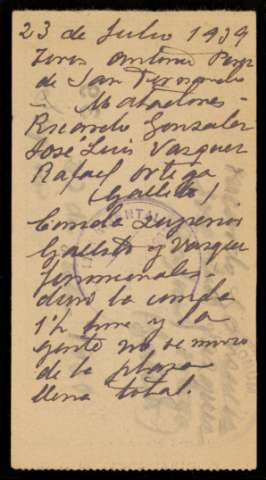 23 de Julio 1939
Toros Antonio Perez
de San Fernando
- Matadores -
Ricardo Gonzalez
José Luis Vazquez
Rafael Ortega
(Gallito)
Corrida Superior
Gallito y Vazquez
fenomenales -
duró la corrida
1½ hora y la
gente no se movio
de la plaza
lleno total.